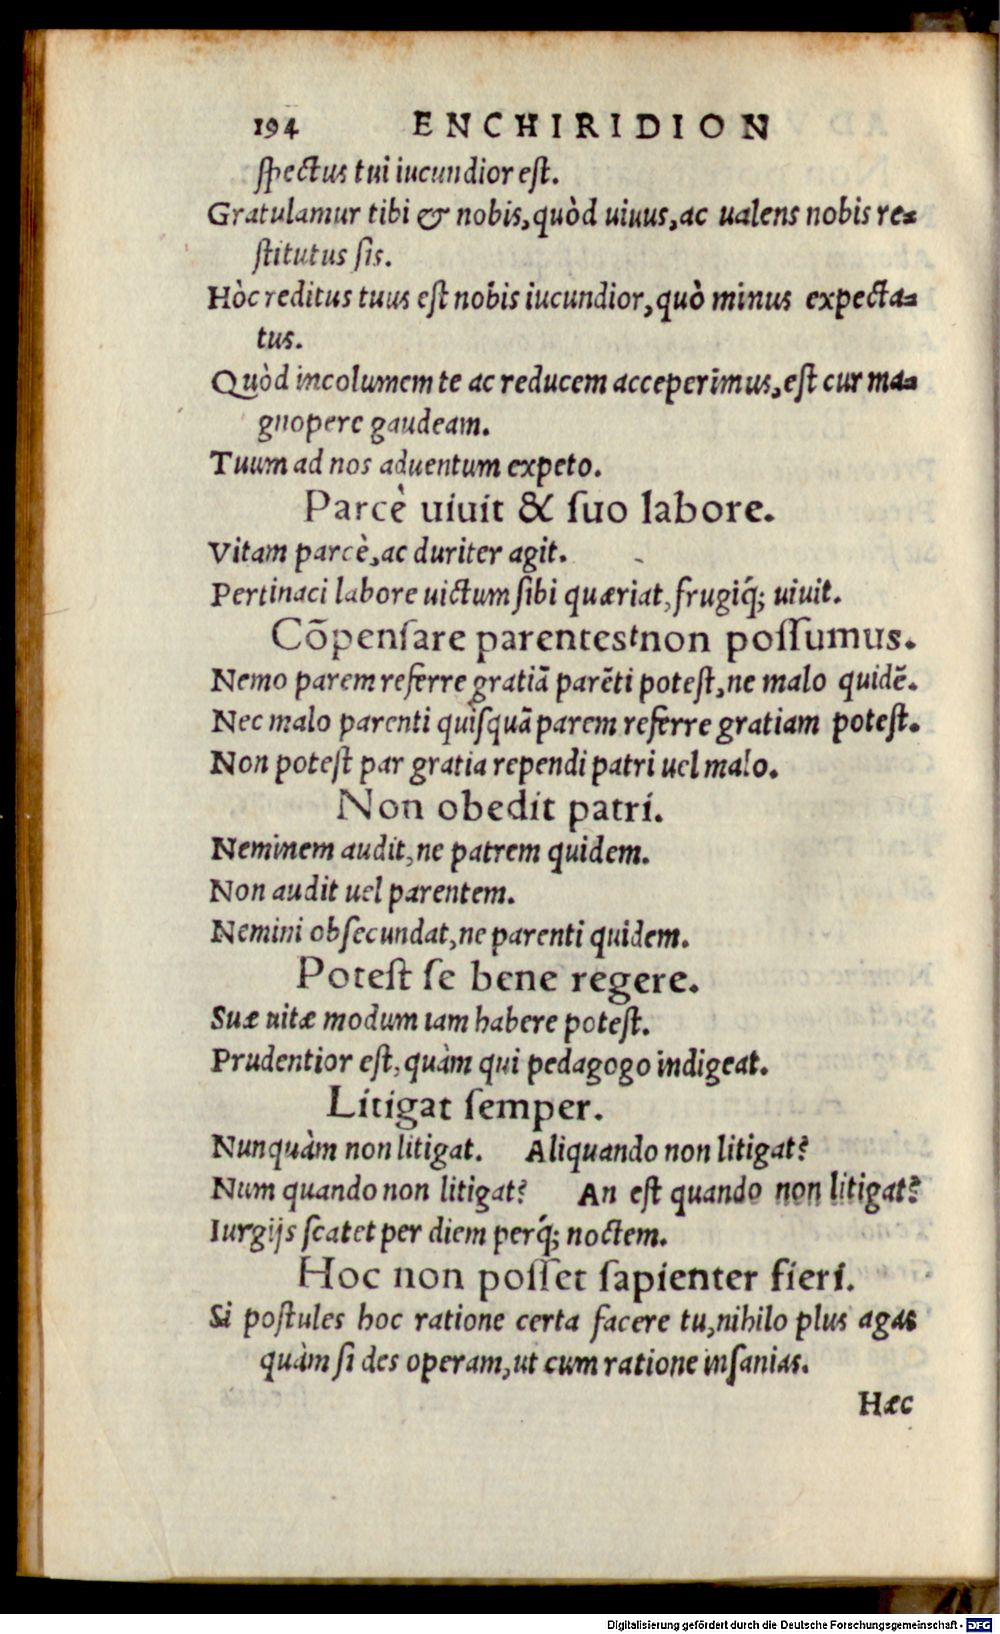 194 ENCHIRIDION
ſpectus tui iucundior eſt.
Gratulamur tibi & nobis, quòd uiuus, ac ualens nobis re-
ſtitutus ſis.
Hòc reditus tuus eſt nobis iucundior, quò minus expecta-
tus.
Quòd incolumem te ac reducem acceperimus, eſt cur ma-
gnopere gaudeam.
Tuum ad nos aduentum expeto.
Parcè uiuit & ſuo labore.
Vitam parcè, ac duriter agit.
Pertinaci labore uictum ſibi quæriat, frugiq́; uiuit.
Cõpenſare parentes non poſſumus.
Nemo parem referre gratiã parẽti poteſt, ne malo quidẽ.
Nec malo parenti quiſquã parem referre gratiam poteſt.
Non poteſt par gratia rependi patri uel malo.
Non obedit patri.
Neminem audit, ne patrem quidem.
Non audit uel parentem.
Nemini obſecundat, ne parenti quidem.
Poteſt ſe bene regere.
Suæ uitæ modum iam habere poteſt.
Prudentior eſt, quàm qui pedagogo indigeat.
Litigat ſemper.
Nunquàm non litigat. Aliquando non litigat?
Num quando non litigat? An eſt quando non litigat?
Iurgijs ſcatet per diem perq́; noctem.
Hoc non poſſet ſapienter fieri.
Si poſtules hoc ratione certa facere tu, nihilo plus agas
quàm ſi des operam, ut cum ratione inſanias.
Hæc
Digitalisierung gefördert durch die Deutsche Forschungsgemeinschaft - DFG